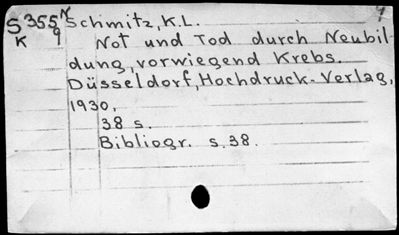 S355N Schmitz, K.L. 9
K 9 Not und Tod durch Neubil-
dung, vorwiegend Krebs.
Düsseldorf, Hochdruck-Verlag,
1930.
38 s.
Bibliogr. s. 38.